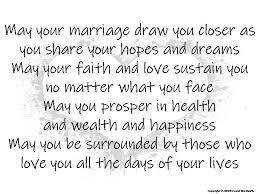 May your marriage draw you closer as
you share your hopes and dreams
May your faith and love sustain you
no matter what you face
May you prosper in health
and wealth and happiness
May you be surrounded by those who
love you all the days of your lives